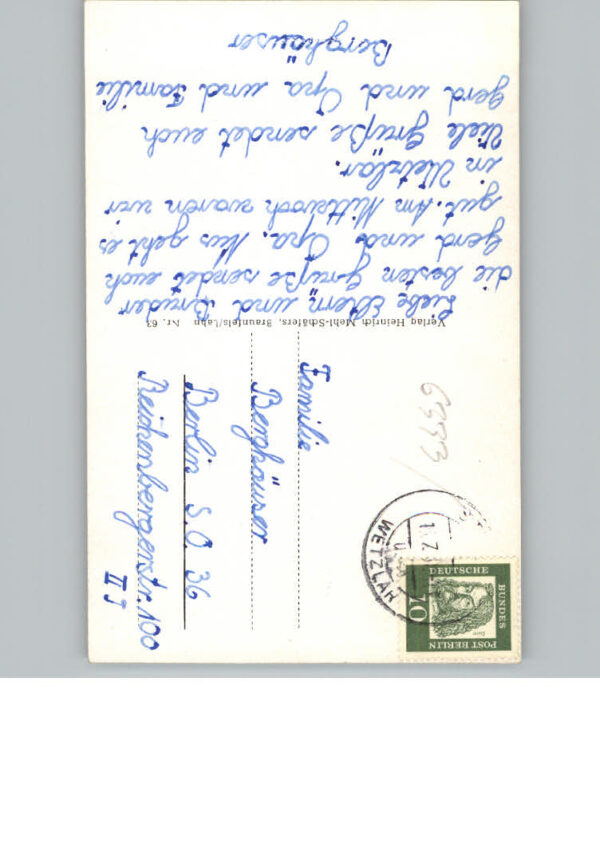 Liebe Eltern und Bruder
die besten Grüße sendet euch
Gerd und Opa. Uns geht es
gut. Am Mittwoch waren wir
in Wetzlar.
Viele Grüße sendet euch
Gerd und Opa und Familie
Berghäuser
Verlag Heinrich Mehl-Schäfers, Braunfels/Lahn Nr. 63
Familie
Berghäuser
Berlin S.O. 36
Reichenbergerstr. 100
II J
6333
WETZLAR
DEUTSCHE
BUNDES
POST BERLIN
10